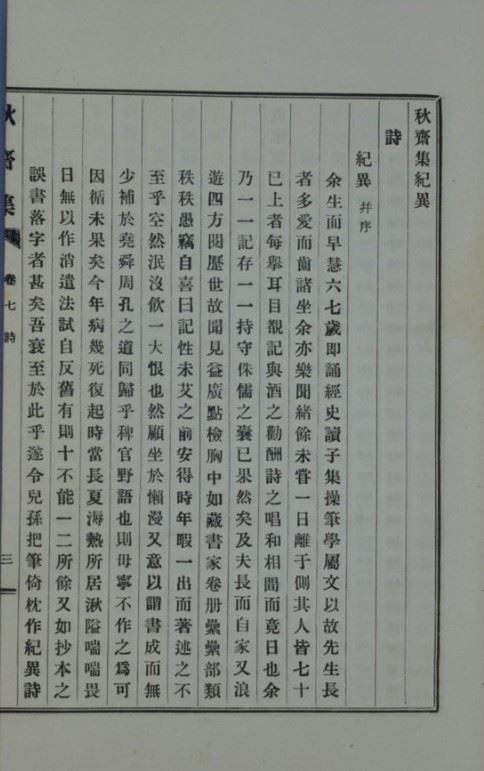 秋齋集紀異
詩
紀異 幷序
余生而早慧六七歲即誦經史讀子集操筆學屬文以故先生長
者多愛而齒諸坐余亦樂聞緒餘未甞一日離于側其人皆七十
已上者每擧耳目覩記與酒之勸酬詩之唱和相間而竟日也余
乃一一記存一一持守侏儒之囊已果然矣及夫長而自家又浪
遊四方閱歷世故聞見益廣點檢胸中如藏書家卷册纍纍部類
秩秩愚竊自喜曰記性未艾之前安得時年暇一出而著述之不
至乎空然泯沒飮一大恨也然顧坐於懶漫又意以謂書成而無
少補於堯舜周孔之道同歸乎稗官野語也則毋寧不作之爲可
因循未果矣今年病幾死復起時當長夏海熱所居湫隘喘喘畏
日無以作消遣法試自反舊有則十不能一二所餘又如抄本之
誤書落字者甚矣吾衰至於此乎遂令兒孫把筆倚枕作紀異詩
秋齋集
卷七 詩
三